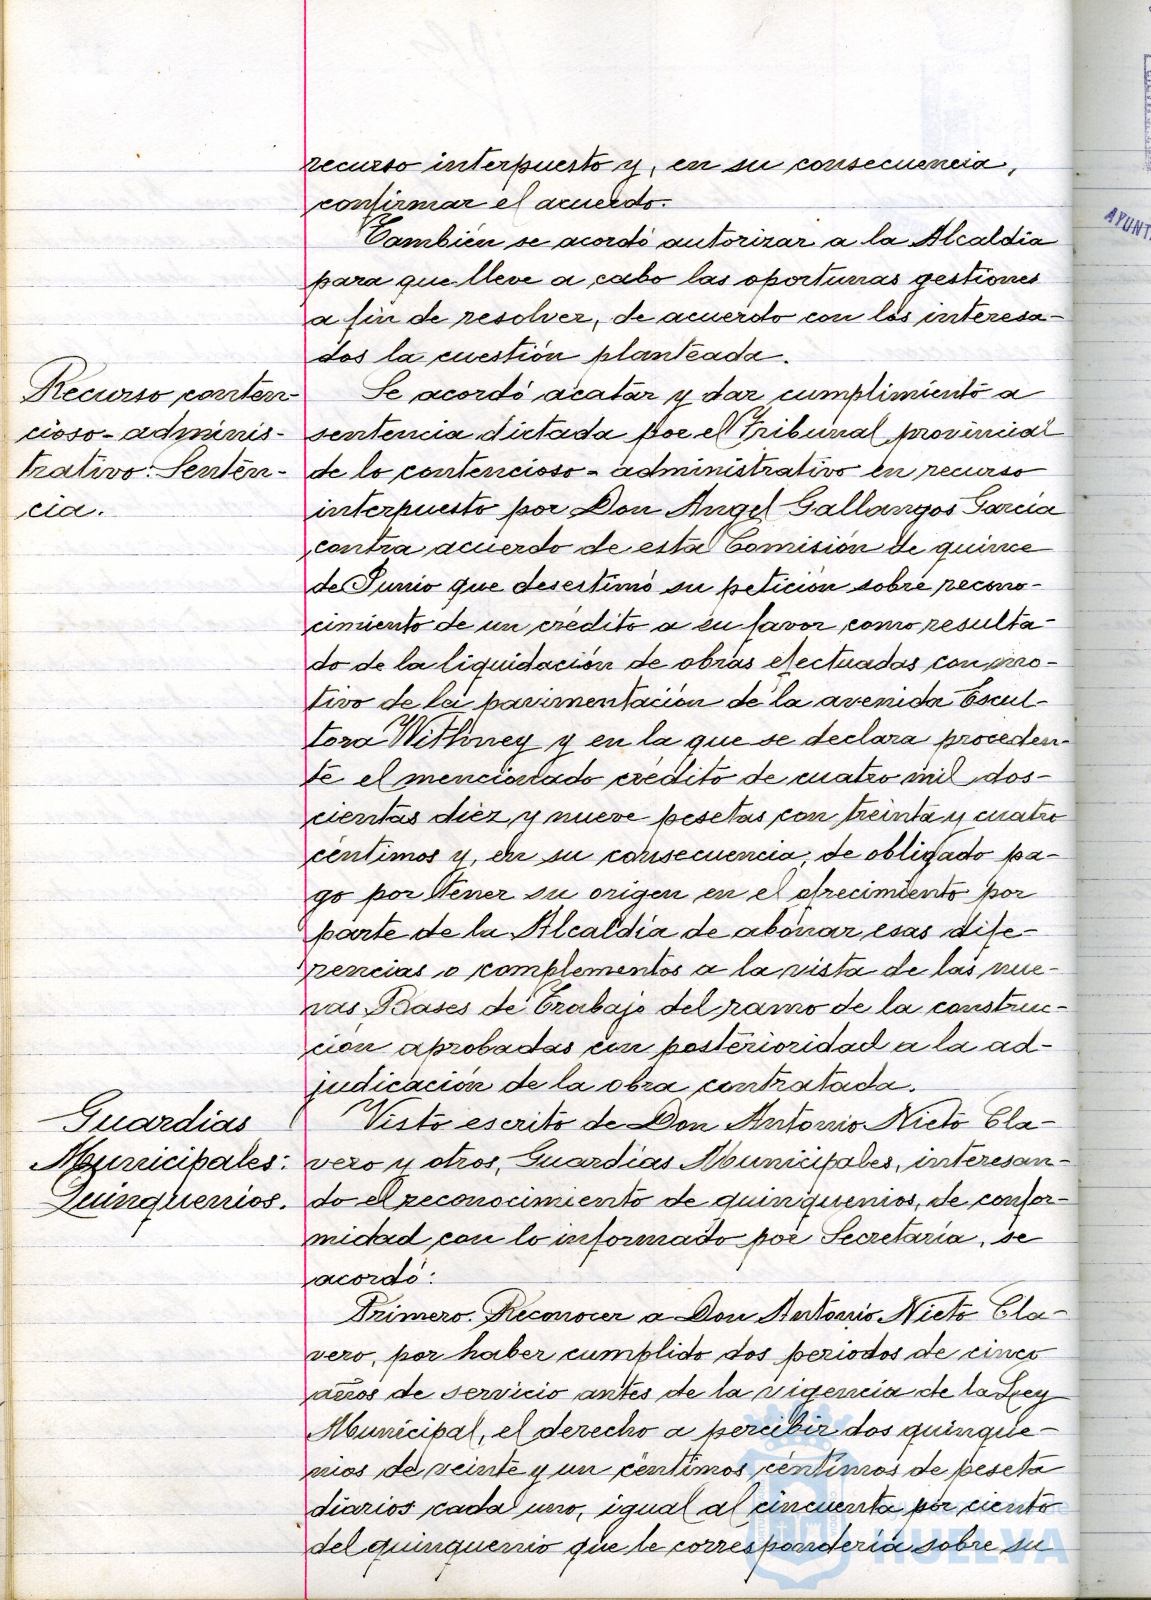 recurso interpuesto y, en su consecuencia,
confirmar el acuerdo.
También se acordó autorizar a la Alcaldía
para que lleve a cabo las oportunas gestiones
a fin de resolver, de acuerdo con los interesa-
dos la cuestión planteada.
Recurso conten-
cioso-adminis-
trativo: Senten-
cia.
Se acordó acatar y dar cumplimiento a
sentencia dictada por el Tribunal provincial
de lo contencioso-administrativo en recurso
interpuesto por Don Angel Gallangos García
contra acuerdo de esta Comisión de quince
de Junio que desestimó su petición sobre recono-
cimiento de un crédito a su favor como resulta-
do de la liquidación de obras efectuadas con mo-
tivo de la pavimentación de la avenida Escul-
tora Withney y en la que se declara proceden-
te el mencionado crédito de cuatro mil dos-
cientas diez y nueve pesetas con treinta y cuatro
céntimos y, en su consecuencia, de obligado pa-
go por tener su origen en el ofrecimiento por
parte de la Alcaldía de abonar esas dife-
rencias o complementos a la vista de las nue-
vas Bases de Trabajo del ramo de la construc-
ción aprobadas con posterioridad a la ad-
judicación de la obra contratada.
Guardias
Municipales:
Quinquenios.
Visto escrito de Don Antonio Nieto Cla-
vero y otros, Guardias Municipales, interesan-
do el reconocimiento de quinquenios, de confor-
midad con lo informado por Secretaría, se
acordó:
Primero. Reconocer a Don Antonio Nieto Cla-
vero, por haber cumplido dos periodos de cinco
años de servicio antes de la vigencia de la Ley
Municipal, el derecho a percibir dos quinque-
nios de veinte y un céntimos céntimos de peseta
diarios cada uno, igual al cincuenta por ciento
del quinquenio que le correspondería sobre su
HUELVA
AYUNT